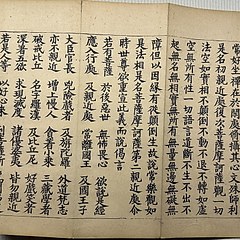 常好坐禪在於閑處修攝其心文殊師利
是名初親近處復次菩薩摩訶薩觀一切
法空如實相不顛倒不動不退不轉如虛
空無所有性一切語言道斷不生不出不
起無名無相實無所有無量無邊無礙無
障但以因緣有從顛倒生故說常樂觀如
是法相是名菩薩摩訶薩第二親近處爾
時世尊欲重宣此義而說偈言
若有菩薩 於後惡世 無怖畏心 欲說是經
應入行處 及親近處 常離國王 及國王子
大臣官長 兇險戲者 及旃陀羅 外道梵志
亦不親近 增上慢人 貪著小乘 三藏學者
破戒比丘 名字羅漢 及比丘尼 好戲笑者
深著五欲 求現滅度 諸優婆夷 皆勿親近
若是人等 以好心來